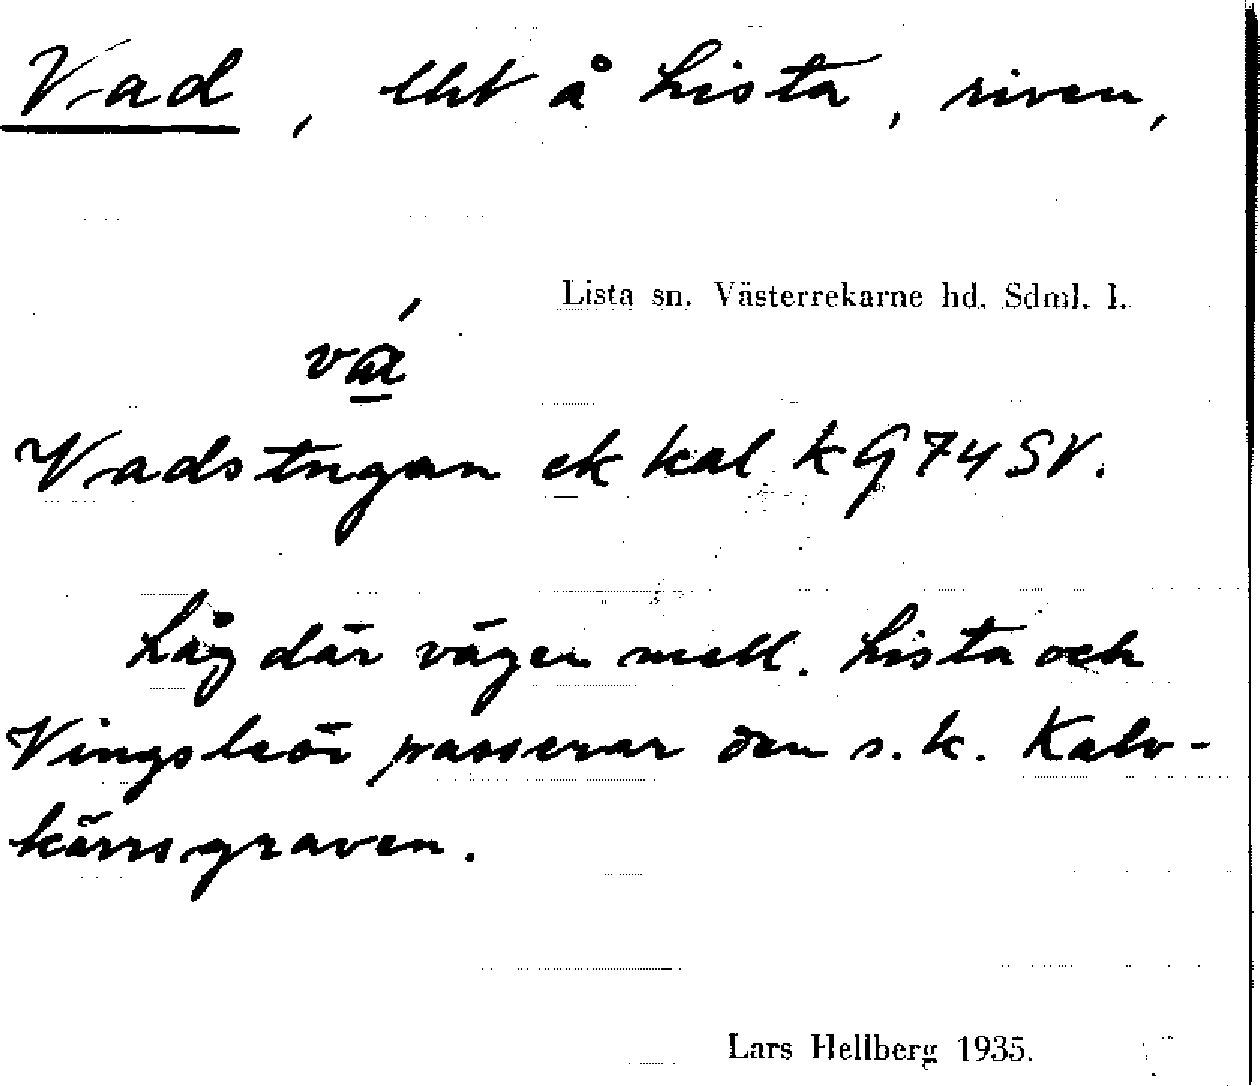 Vad, lht å Lista, riven,
Lista sn. Västerrekarne hd. Sdml. l.
vá
Vadstugan ek kal k G74SV.
Låg där vägen mell. Lista och
Vingsleör passerar den s.k. Kalv-
kärrsgraven.
Lars Hellberg 1935.